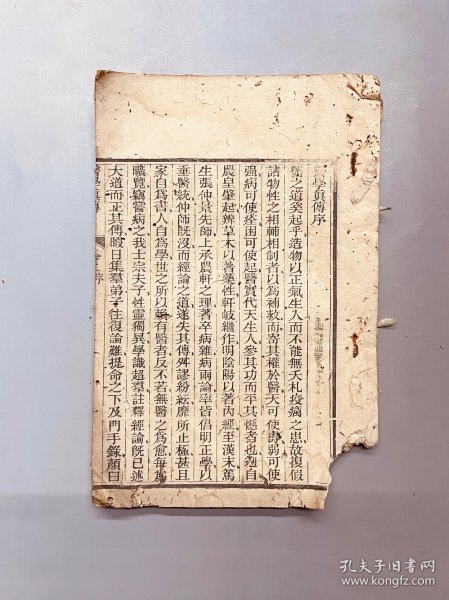 醫學真傳序
醫之道奚起乎造物以正氣生人而不能無夭札疫癘之患故復假
諸物性之相補相制者以為補救而寄其權於醫夭可使壽弱可使
强病可使痊困可使起醫實代天生人參其功而平其憾者也粤自
農皇肇起辨草木以著藥性軒岐繼作明陰陽以著內經至漢末篤
生張仲景先師上承農軒之理著卒病雜病兩論率皆倡明正學以
垂醫統仲師旣沒而經論之道遂失其傳舛謬紛紜靡所止極甚且
家自為書人自為學世之所以有醫者反不若無醫之為愈每為
曠覽竊嘗病之我士宗夫子性靈獨異學識超羣註釋經論旣已述
大道而正其傳暇日集羣弟子往復論難提命之下及門手錄顏曰
醫學真傳 序
孔夫子旧书网
www.kongfz.com